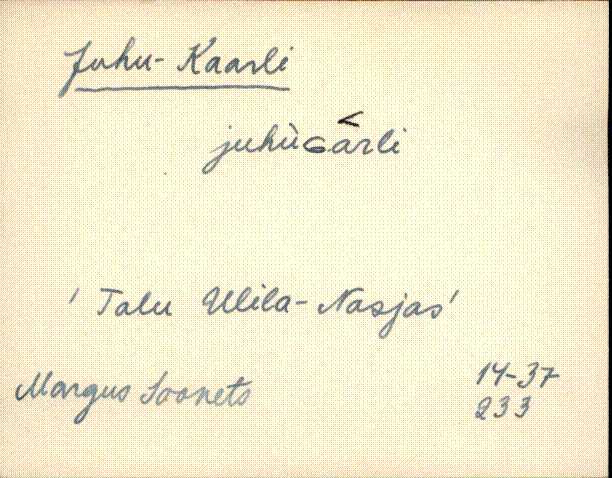 Juhu-Kaarli
juhùɢārli
'Talu Ulila-Nasjas'
Margus Soonets
14-37
233